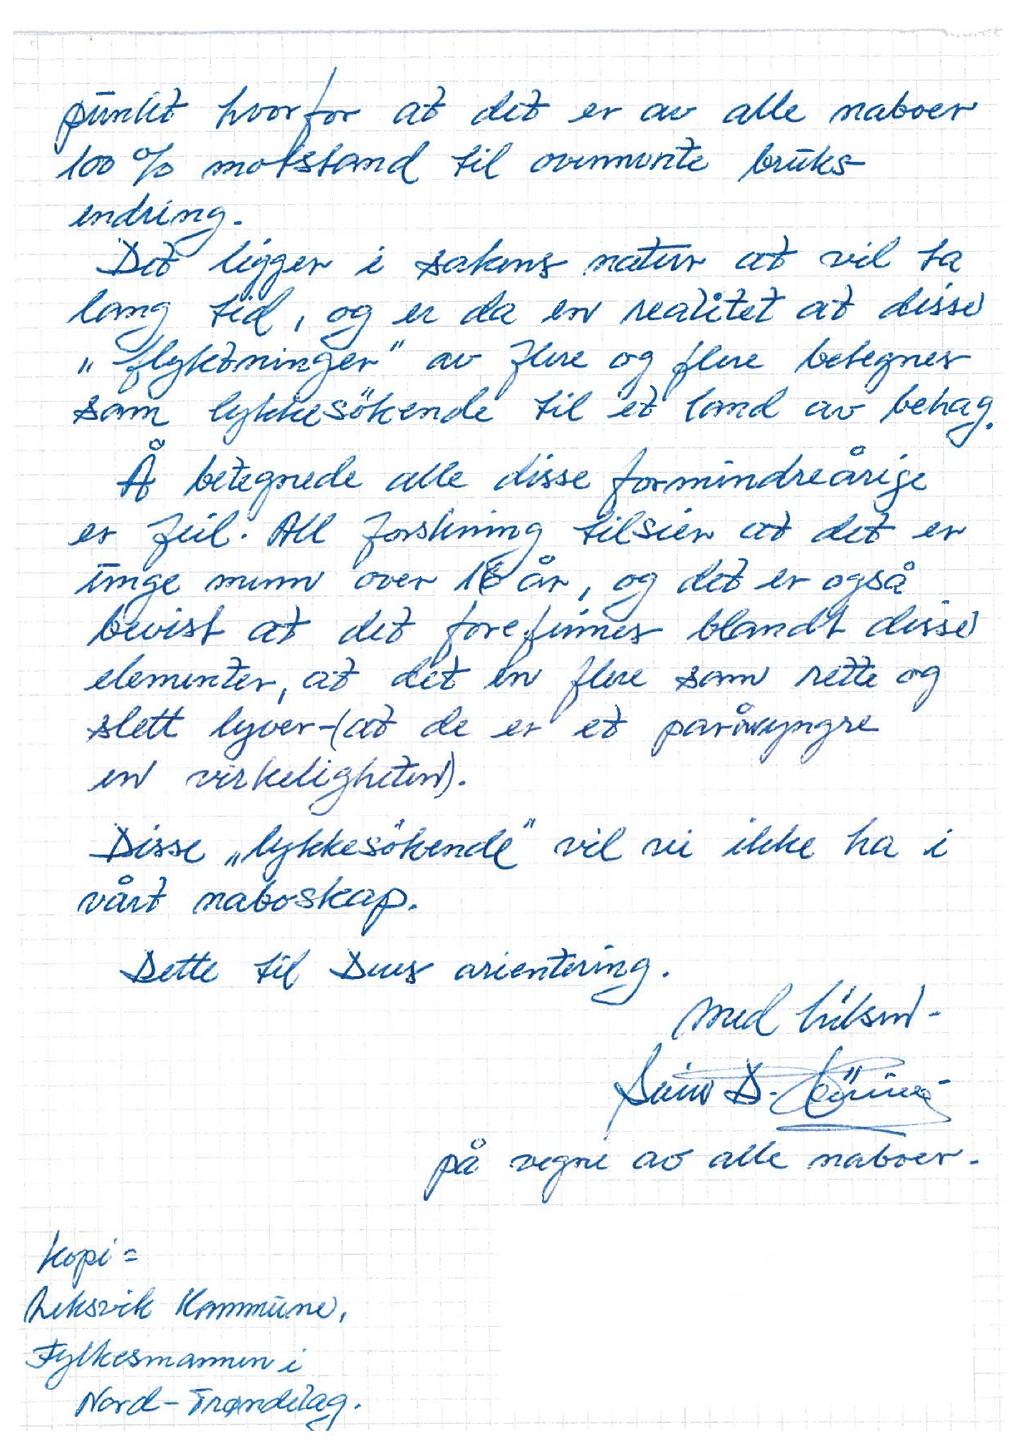 punkt hvorfor at det er av alle naboer
100 % motstand til ovennevnte bruks
endring.
Det ligger i sakens natur at vil ta
lang tid, og er da en realitet at disse
"flyktninger" av flere og flere betegnes
som lykkesökende til et land av behag.
Å betegnede alle disse formindreårige
er feil. All forskning tilsier at det er
unge menn over 18 år, og det er også
bevist at det forefinnes blandt disse
elementer, at det en flere som rette og
slett lyver-(at de er et par år yngre
en virkeligheten).
Disse "lykkesökende" vil vi ikke ha i
vårt naboskap.
Dette til Deres orientering.
Med hilsen-
D.
på vegne av alle naboer.
Kopi=
Leksvik Kommune,
Fylkesmannen i
Nord-Trøndelag.